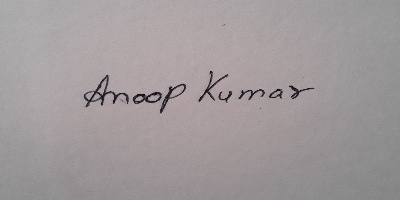 Anoop Kumar